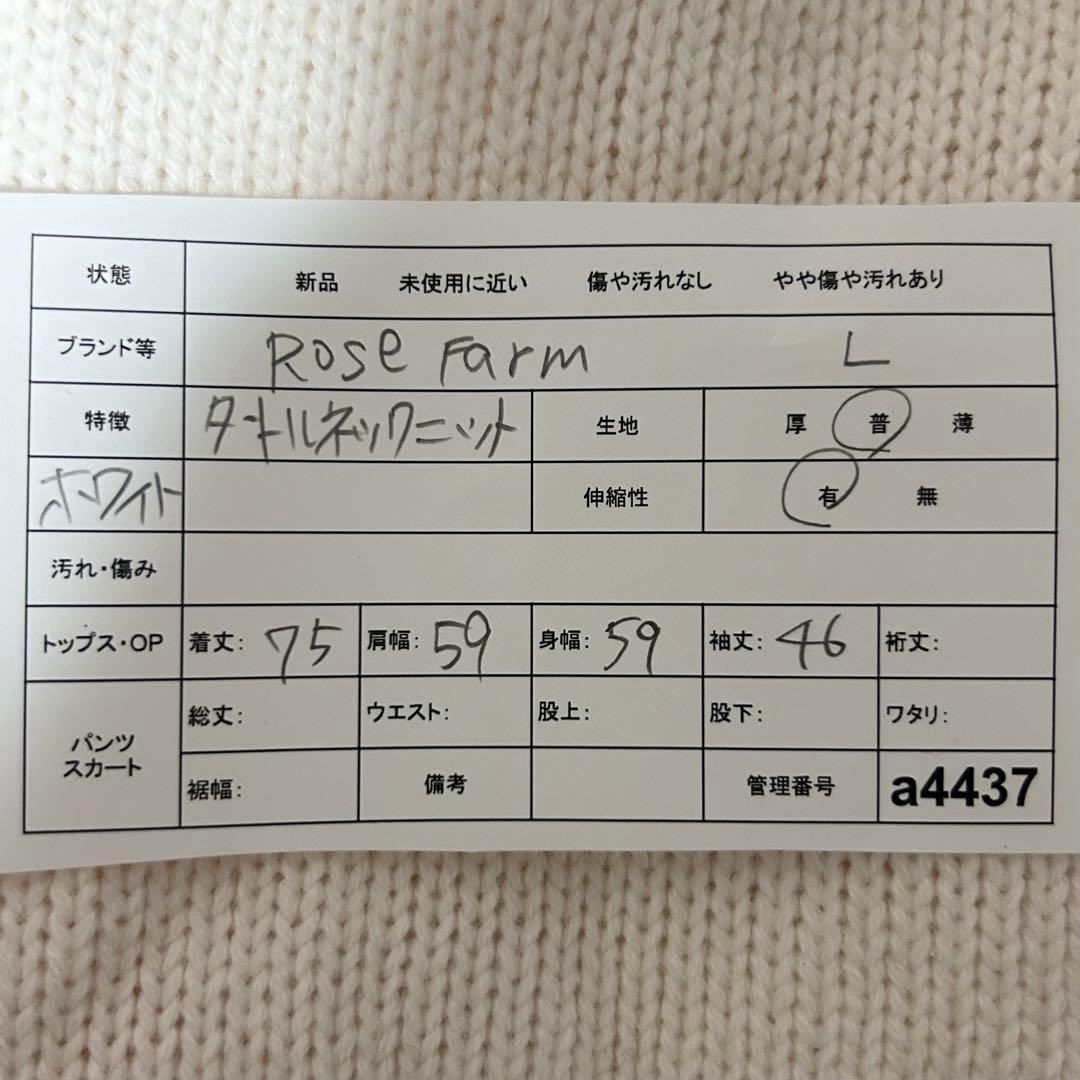 状態 新品 未使用に近い 傷や汚れなし やや傷や汚れあり
ブランド等 Rose Farm L
特徴 タートルネックニット 生地 厚 普 薄
ホワイト 伸縮性 有 無
汚れ・傷み
トップス・OP 着丈: 75 肩幅: 59 身幅: 59 袖丈: 46 裄丈:
パンツ
スカート
総丈: ウエスト: 股上: 股下: ワタリ:
裾幅: 備考 管理番号 a4437